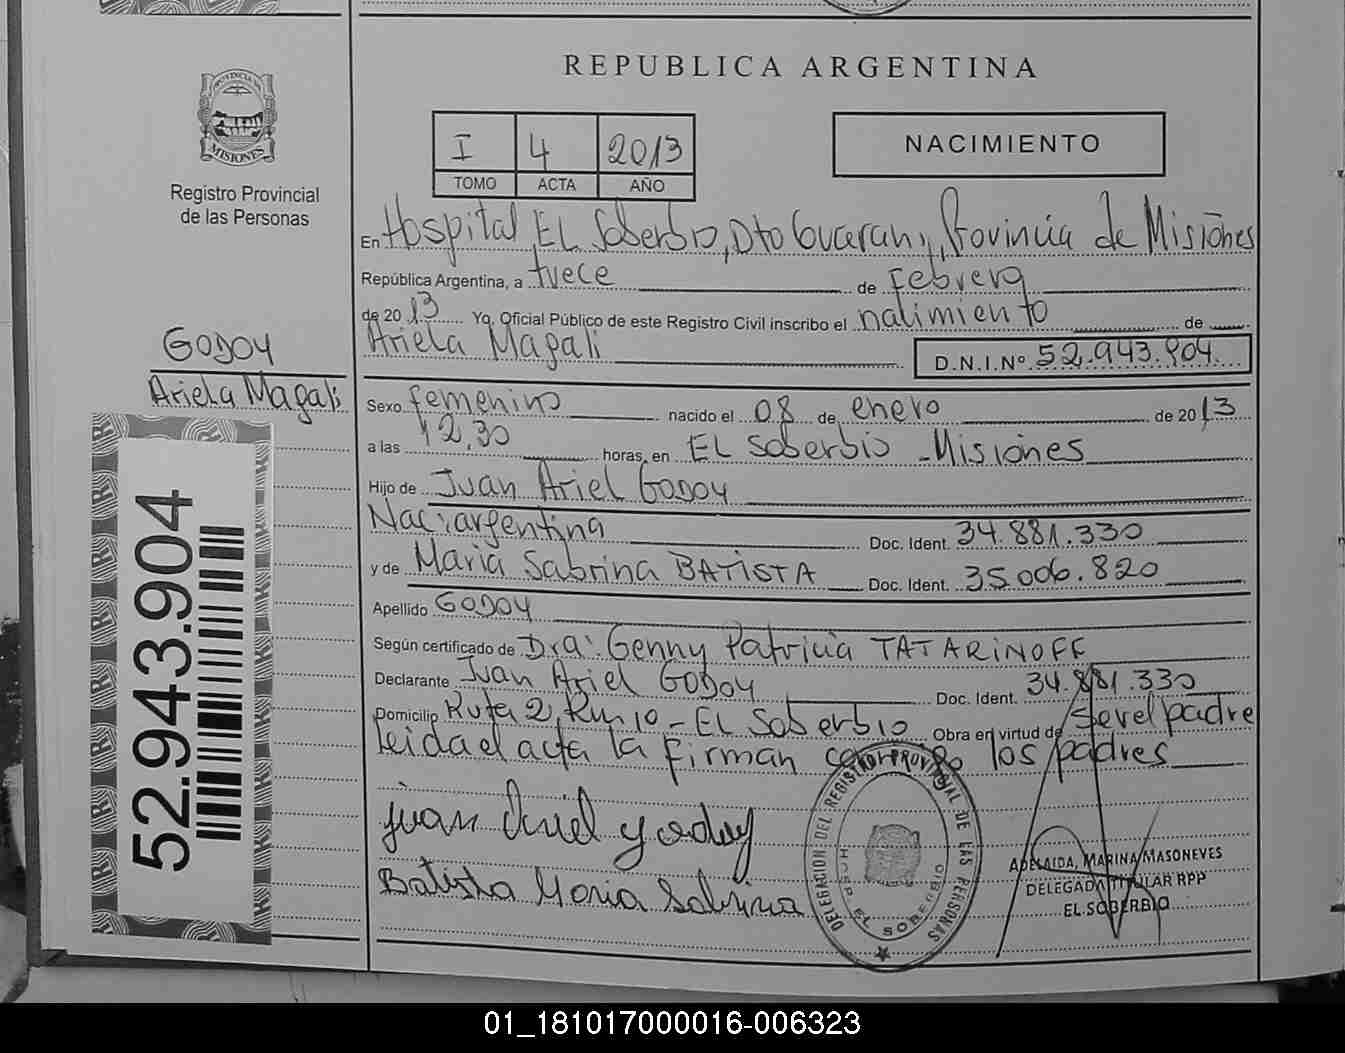 REPUBLICA ARGENTINA
PROVINCIA DE
MISIONES
Registro Provincial
de las Personas
I 4 2013
TOMO ACTA AÑO
NACIMIENTO
En Hospital EL Soberbio, Dto Guarani, Provincia de Misiones
República Argentina, a trece de Febrero
de 2013 Yo, Oficial Público de este Registro Civil inscribo el nacimiento de
Ariela Magali D.N.I.Nº 52.943.904.
GODOY
Ariela Magali
Sexo femenino nacido el 08 de enero de 2013
a las 12,30 horas, en EL Soberbio - Misiones
Hijo de Juan Ariel GODOY
Nac: argentina Doc. Ident. 34.881.330
y de Maria Sabrina BATISTA Doc. Ident. 35.006.820
Apellido GODOY
Según certificado de Dra: Genny Patricia TATARINOFF
Declarante Juan Ariel GODOY Doc. Ident. 34.881.330
Domicilio Ruta 2, Km 10 - EL Soberbio Obra en virtud de ser el padre
leida el acta la firman conmigo los padres
juan Ariel godoy
Batista Maria Sabrina
DELEGACION DEL REGISTRO PROVINCIAL DE LAS PERSONAS
HOSP. EL SOBERBIO
ADELAIDA, MARINA MASONEVES
DELEGADA TITULAR RPP
EL SOBERBIO
52.943.904
01_181017000016-006323